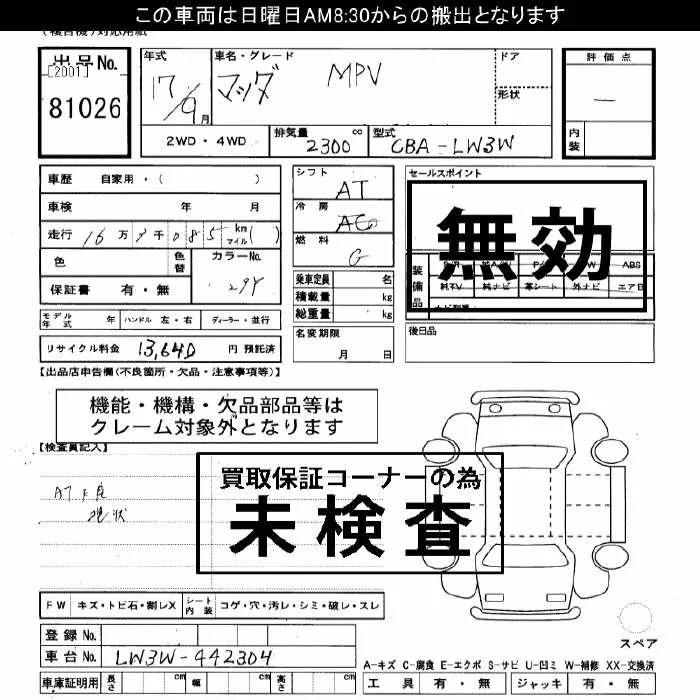 この車両は日曜日AM8:30からの搬出となります
(複合機)対応用紙
出品No. 年式 車名・グレード ドア 評価点
[2001] 17/9月 マツダ MPV 形状 —
81026 内装
2WD・4WD 排気量 2300 cc 型式 CBA-LW3W
車歴 自家用・( ) シフト AT セールスポイント
車検 年 月 冷房 AC
無効
走行 16万 千085 km マイル ( ) 燃料 G
色 色替 カラーNo. 29Y 乗車定員 名 装備品 S/R P/S P/W ABS
保証書 有・無 積載量 kg 純TV 純ナビ 革シート 外ナビ エアB
総重量 kg
モデル年式 年 ハンドル 左・右 ディーラー・並行 名変期限 月 日 後日品
リサイクル料金 13,640 円 預託済
【出品店申告欄(不良箇所・欠品・注意事項等)】
機能・機構・欠品部品等は
クレーム対象外となります
【検査員記入】
買取保証コーナーの為
未検査
AT不良
現状
FW キズ・トビ石・割レX シート内装 コゲ・穴・汚レ・シミ・破レ・スレ
登録No. スペア
車台No. LW3W-442304
A-キズ C-腐食 E-エクボ S-サビ U-凹ミ W-補修 XX-交換済
車庫証明用 長さ cm 幅 cm 高さ cm 工具 有・無 ジャッキ 有・無